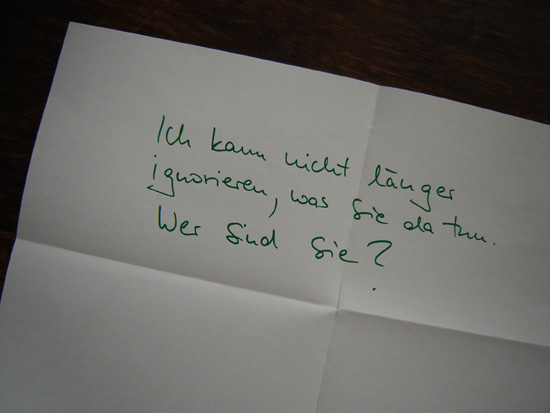 Ich kann nicht länger
ignorieren, was Sie da tun.
Wer sind Sie?